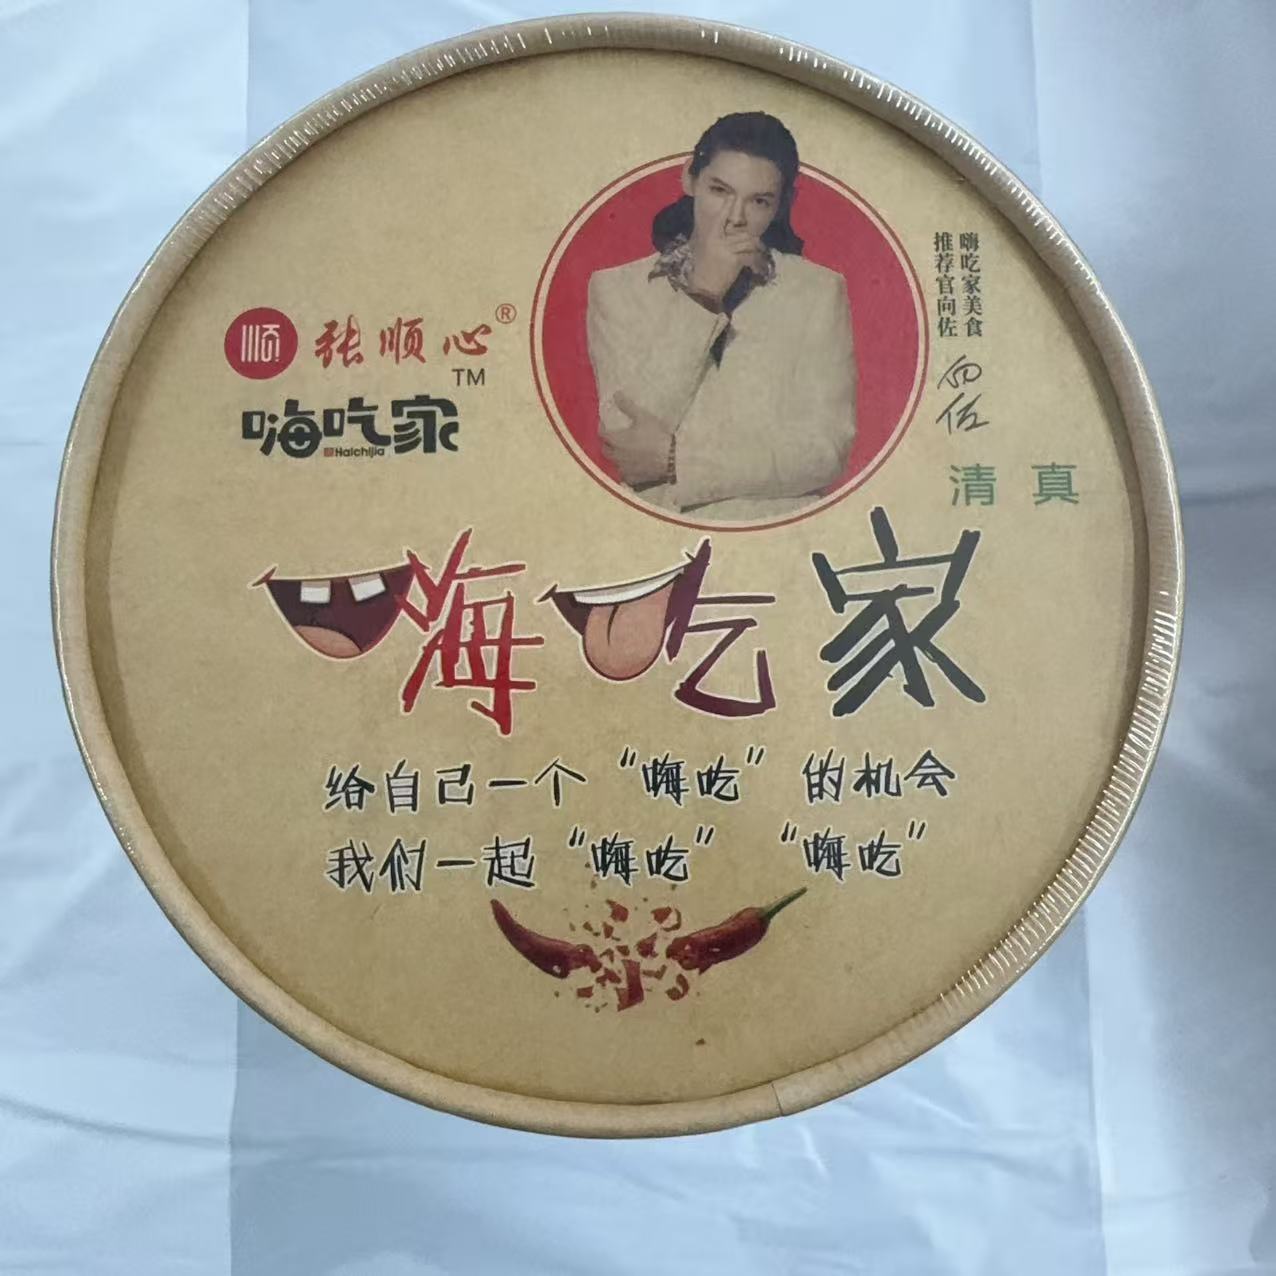 嗨吃家美食
推荐官向佐
向佐
顺 张顺心®
TM
嗨吃家
Haichijia
清真
嗨吃家
给自己一个“嗨吃”的机会
我们一起“嗨吃” “嗨吃”